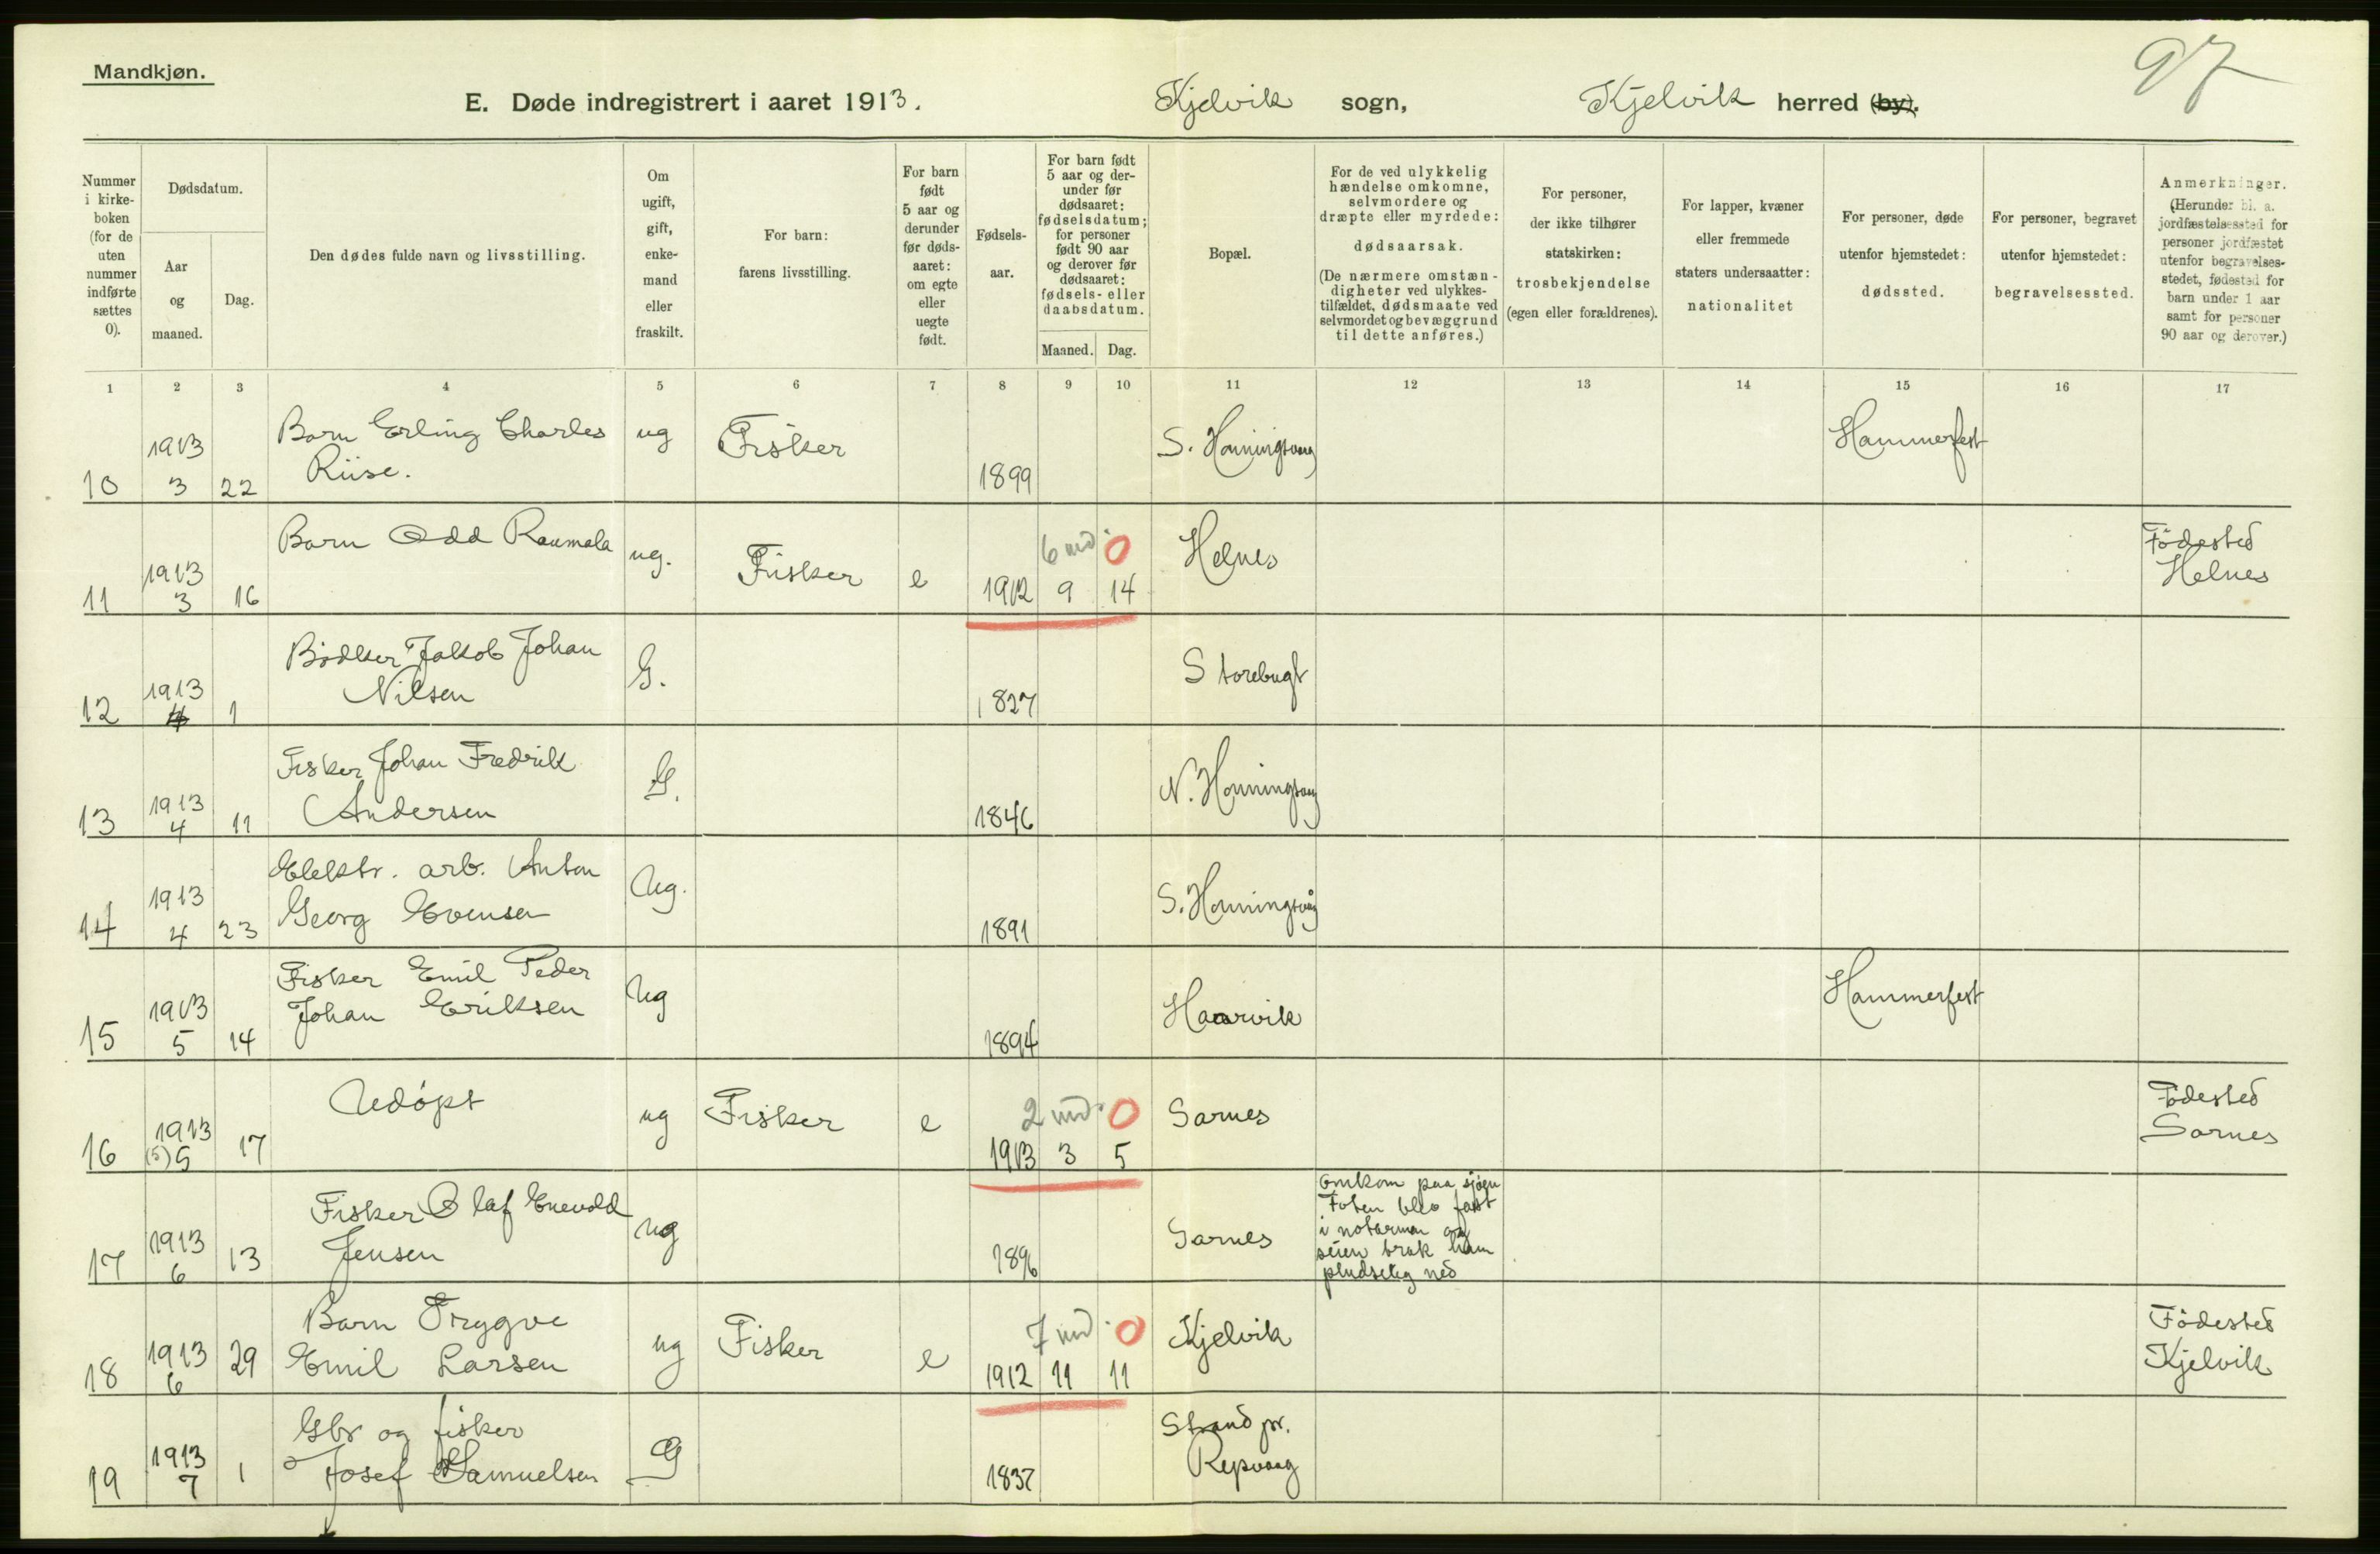 Mandkjøn.
97
E. Døde indregistrert i aaret 1913. Kjelvik sogn, Kjelvik herred (by).
Nummer i kirke-boken (for de uten nummer indførte sættes 0).
Dødsdatum.
Aar og maaned.
Dag.
Den dødes fulde navn og livsstilling.
Om ugift, gift, enke-mand eller fraskilt.
For barn: farens livsstilling.
For barn født 5 aar og derunder før døds-aaret: om egte eller uegte født.
Fødsels-aar.
For barn født 5 aar og der-under før dødsaaret: fødselsdatum; for personer født 90 aar og derover før dødsaaret: fødsels- eller daabsdatum.
Maaned. Dag.
Bopæl.
For de ved ulykkelig hændelse omkomne, selvmordere og dræpte eller myrdede: dødsaarsak. (De nærmere omstæn-digheter ved ulykkes-tilfældet, dødsmaate ved selvmordet og bevæggrund til dette anføres.)
For personer, der ikke tilhører statskirken: trosbekjendelse (egen eller forældrenes).
For lapper, kvæner eller fremmede staters undersaatter: nationalitet
For personer, døde utenfor hjemstedet: dødssted.
For personer, begravet utenfor hjemstedet: begravelsessted.
Anmerkninger. (Herunder bl. a. jordfæstelsessted for personer jordfæstet utenfor begravelses-stedet, fødested for barn under 1 aar samt for personer 90 aar og derover.)
1 2 3 4 5 6 7 8 9 10 11 12 13 14 15 16 17
10 1913 3 22 Barn Erling Charles Riise. ug Fisker 1899 S. Honningsvaag Hammerfest
11 1913 3 16 Barn Odd Raumala ug. Fisker e 6 md. 0 1912 9 14 Helnes Födested Helnes
12 1913 4 1 Bödker Jakob Johan Nilsen G. 1827 Storebugt
13 1913 4 11 Fisker Johan Fredrik Andersen G. 1846 N. Honningsvaag
14 1913 4 23 Elektr. arb. Anton Georg Evensen Ug. 1891 S. Honningsvåg
15 1913 5 14 Fisker Emil Peder Johan Eriksen Ug 1894 Haarvik Hammerfest
16 1913 (5) 5 17 Udöpt ug Fisker e 2 md. 0 1913 3 5 Sarnes Födested Sarnes
17 1913 6 13 Fisker Olaf Enevold Jensen ug 1896 Sarnes Omkom paa sjöen Foten blev fast i notarmen og seien trak ham pludselig ned
18 1913 6 29 Barn Trygve Emil Larsen ug Fisker e 7 md. 0 1912 11 11 Kjelvik Födested Kjelvik
19 1913 7 1 Gbr og fisker Josef Samuelsen G 1837 Strand pr. Repvaag